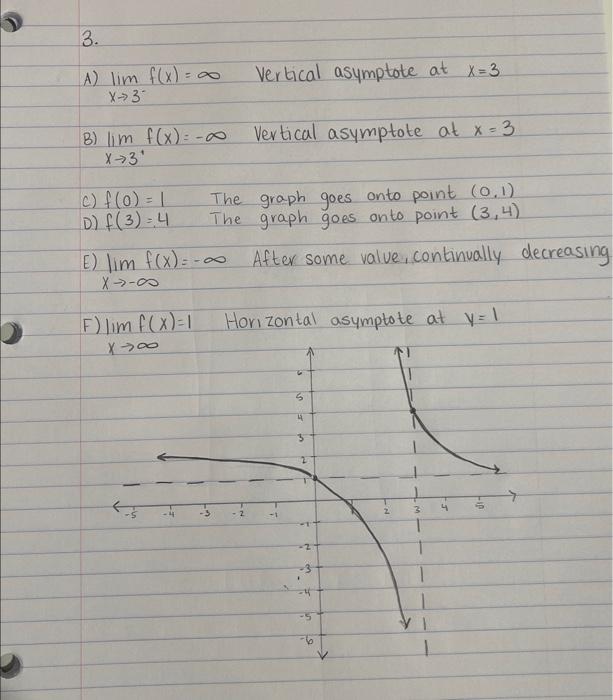 3.
A) lim f(x) = ∞ Vertical asymptote at x=3
x→3⁻
B) lim f(x) = -∞ Vertical asymptote at x = 3
x→3⁺
C) f(0) = 1 The graph goes onto point (0,1)
D) f(3) = 4 The graph goes onto point (3,4)
E) lim f(x) = -∞ After some value, continually decreasing
x→-∞
F) lim f(x) = 1 Horizontal asymptote at y = 1
x→∞
6
5
4
3
2
1
-5 -4 -3 -2 -1 1 2 3 4 5
-1
-2
-3
-4
-5
-6